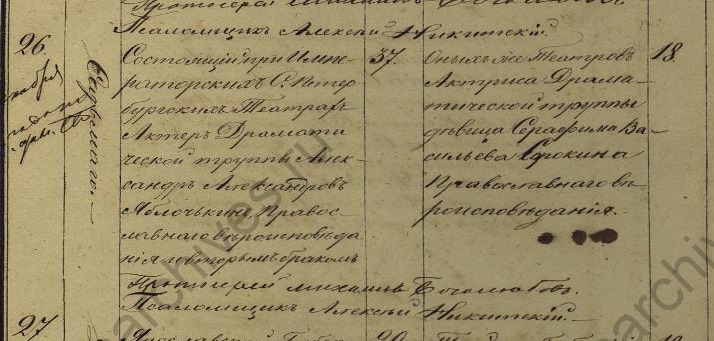 Протоіерей Михаилъ
Псаломщикъ Алексѣй Никитскій.
26.
Седьмаго.
Состоящій при Импе-
раторскихъ С. Петер
бургскихъ Театрахъ
Актеръ Драмати
ческой труппы Алек-
сандръ Александровъ
Яблочкинъ, Правос-
лавнаго вѣроисповѣда
нія и вторымъ бракомъ
37.
Оныхъ же Театровъ
Актриса Драма-
тической труппы
дѣвица Серафима Ва-
сильева Сорокина
Православнаго вѣ-
роисповѣданія.
18.
Протоіерей Михаилъ Боголюбовъ.
Псаломщикъ Алексѣй Никитскій.
27
archives.ru
archiv